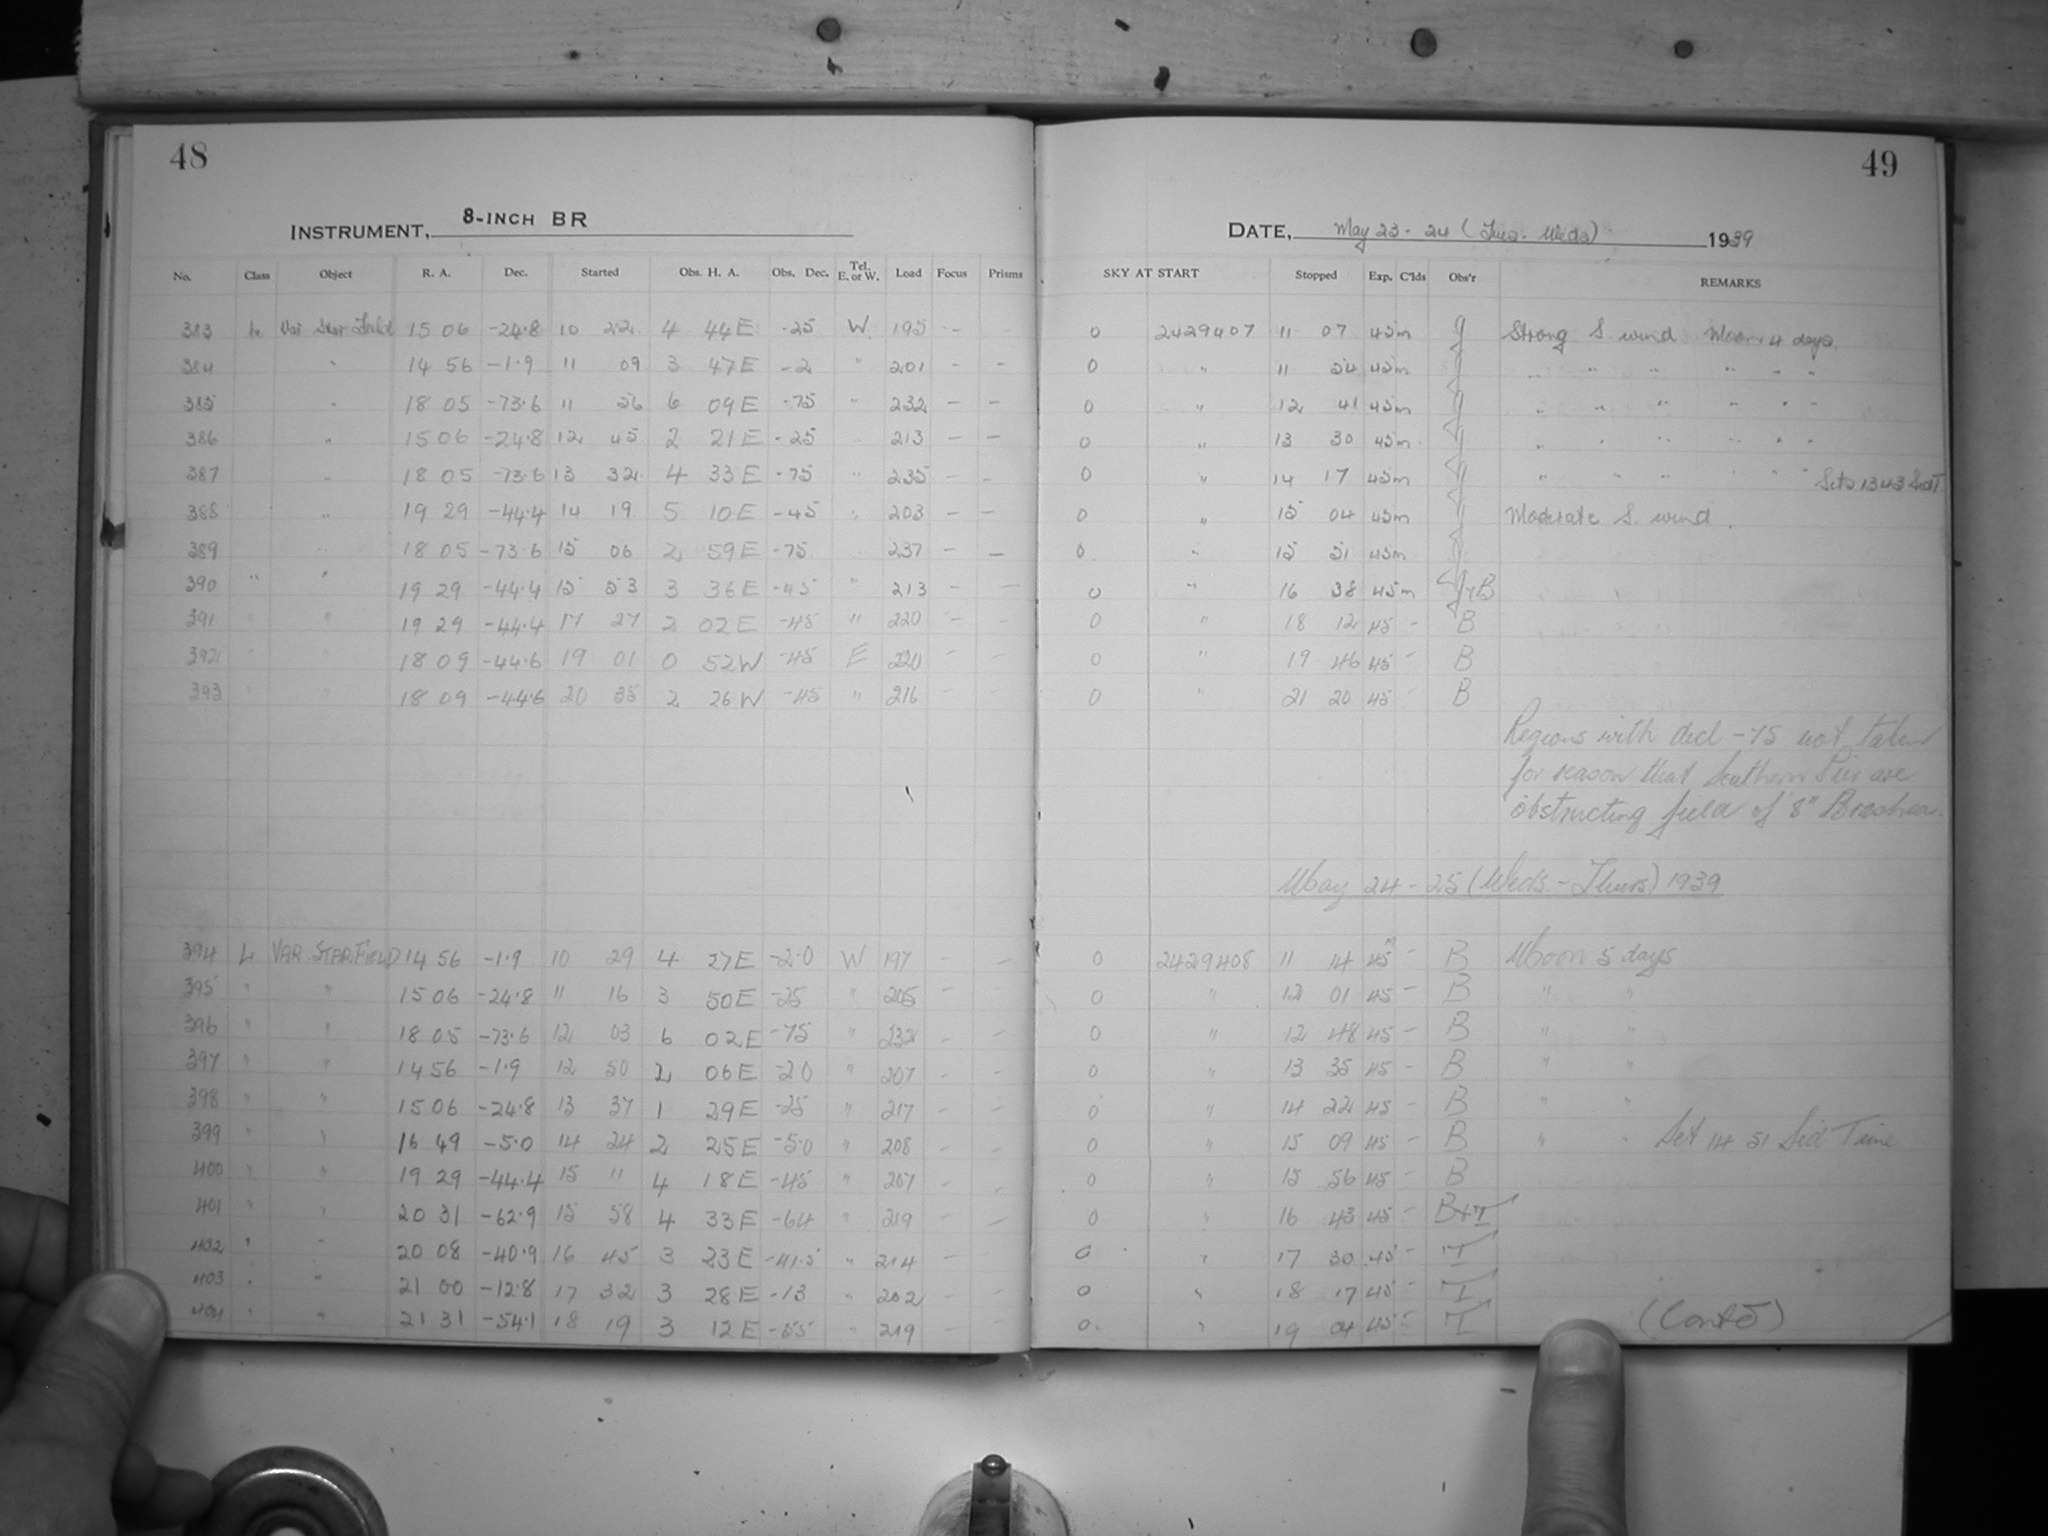 48
49
INSTRUMENT, 8-INCH BR
DATE, May 23-24 (Tues. Weds) 1939
No. Class Object R. A. Dec. Started Obs. H. A. Obs. Dec. Tel. E. or W. Load Focus Prisms SKY AT START Stopped Exp. C'lds Obs'r REMARKS
383 L Var Star Field 15 06 -24.8 10 22 4 44E -25 W. 195 - 0 2429407 11 07 45m Strong S. wind Moon 4 days.
384 " 14 56 -1.9 11 09 3 47E -2 " 201 - - 0 " 11 54 45m " " " " " "
385 " 18 05 -73.6 11 56 6 09E -75 " 232 - - 0 " 12 41 45m " " " " " "
386 " 15 06 -24.8 12 45 2 21E -25 213 - - 0 " 13 30 45m " " " " " "
387 " 18 05 -73.6 13 32 4 33E -75 " 235 - - 0 " 14 17 45m " " " " " " Sets 1343 Sid T
388 " 19 29 -44.4 14 19 5 10E -45 " 203 - - 0 " 15 04 45m Moderate S. wind.
389 " 18 05 -73.6 15 06 2 59E -75 237 - - 0 " 15 51 45m
390 " " 19 29 -44.4 15 53 3 36E -45 " 213 - - 0 " 16 38 45m B
391 " " 19 29 -44.4 17 27 2 02E -45 " 220 - - 0 " 18 12 45 - B
392 " " 18 09 -44.6 19 01 0 52W -45 E 220 - - 0 " 19 46 45 - B
393 " " 18 09 -44.6 20 35 2 26W -45 " 216 - - 0 " 21 20 45 - B
Regions with decl -75 not taken
for reason that Southern Pier are
obstructing field of 8" Brashear.
May 24-25 (Weds.-Thurs.) 1939
394 L VAR. STAR FIELD 14 56 -1.9 10 29 4 27E -2.0 W 197 - - 0 2429408 11 14 45m - B Moon 5 days
395 " " 15 06 -24.8 11 16 3 50E -25 " 205 - - 0 " 12 01 45 - B " "
396 " " 18 05 -73.6 12 03 6 02E -75 " 232 - - 0 " 12 48 45 - B " "
397 " " 14 56 -1.9 12 50 2 06E -2.0 " 207 - - 0 " 13 35 45 - B " "
398 " " 15 06 -24.8 13 37 1 29E -25 " 217 - - 0 " 14 22 45 - B " "
399 " " 16 49 -5.0 14 24 2 25E -5.0 " 208 - - 0 " 15 09 45 - B " " Set 14 51 Sid Time
400 " " 19 29 -44.4 15 11 4 18E -45 " 207 - - 0 " 15 56 45 - B
401 " " 20 31 -62.9 15 58 4 33E -64 " 219 - - 0 " 16 43 45 - B+T
402 " " 20 08 -40.9 16 45 3 23E -41.5 " 214 - - 0 " 17 30 45 - T
403 " " 21 00 -12.8 17 32 3 28E -13 " 202 - - 0 " 18 17 45 - T
404 " " 21 31 -54.1 18 19 3 12E -55 " 219 - - 0 " 19 04 45 - T
(Contd)